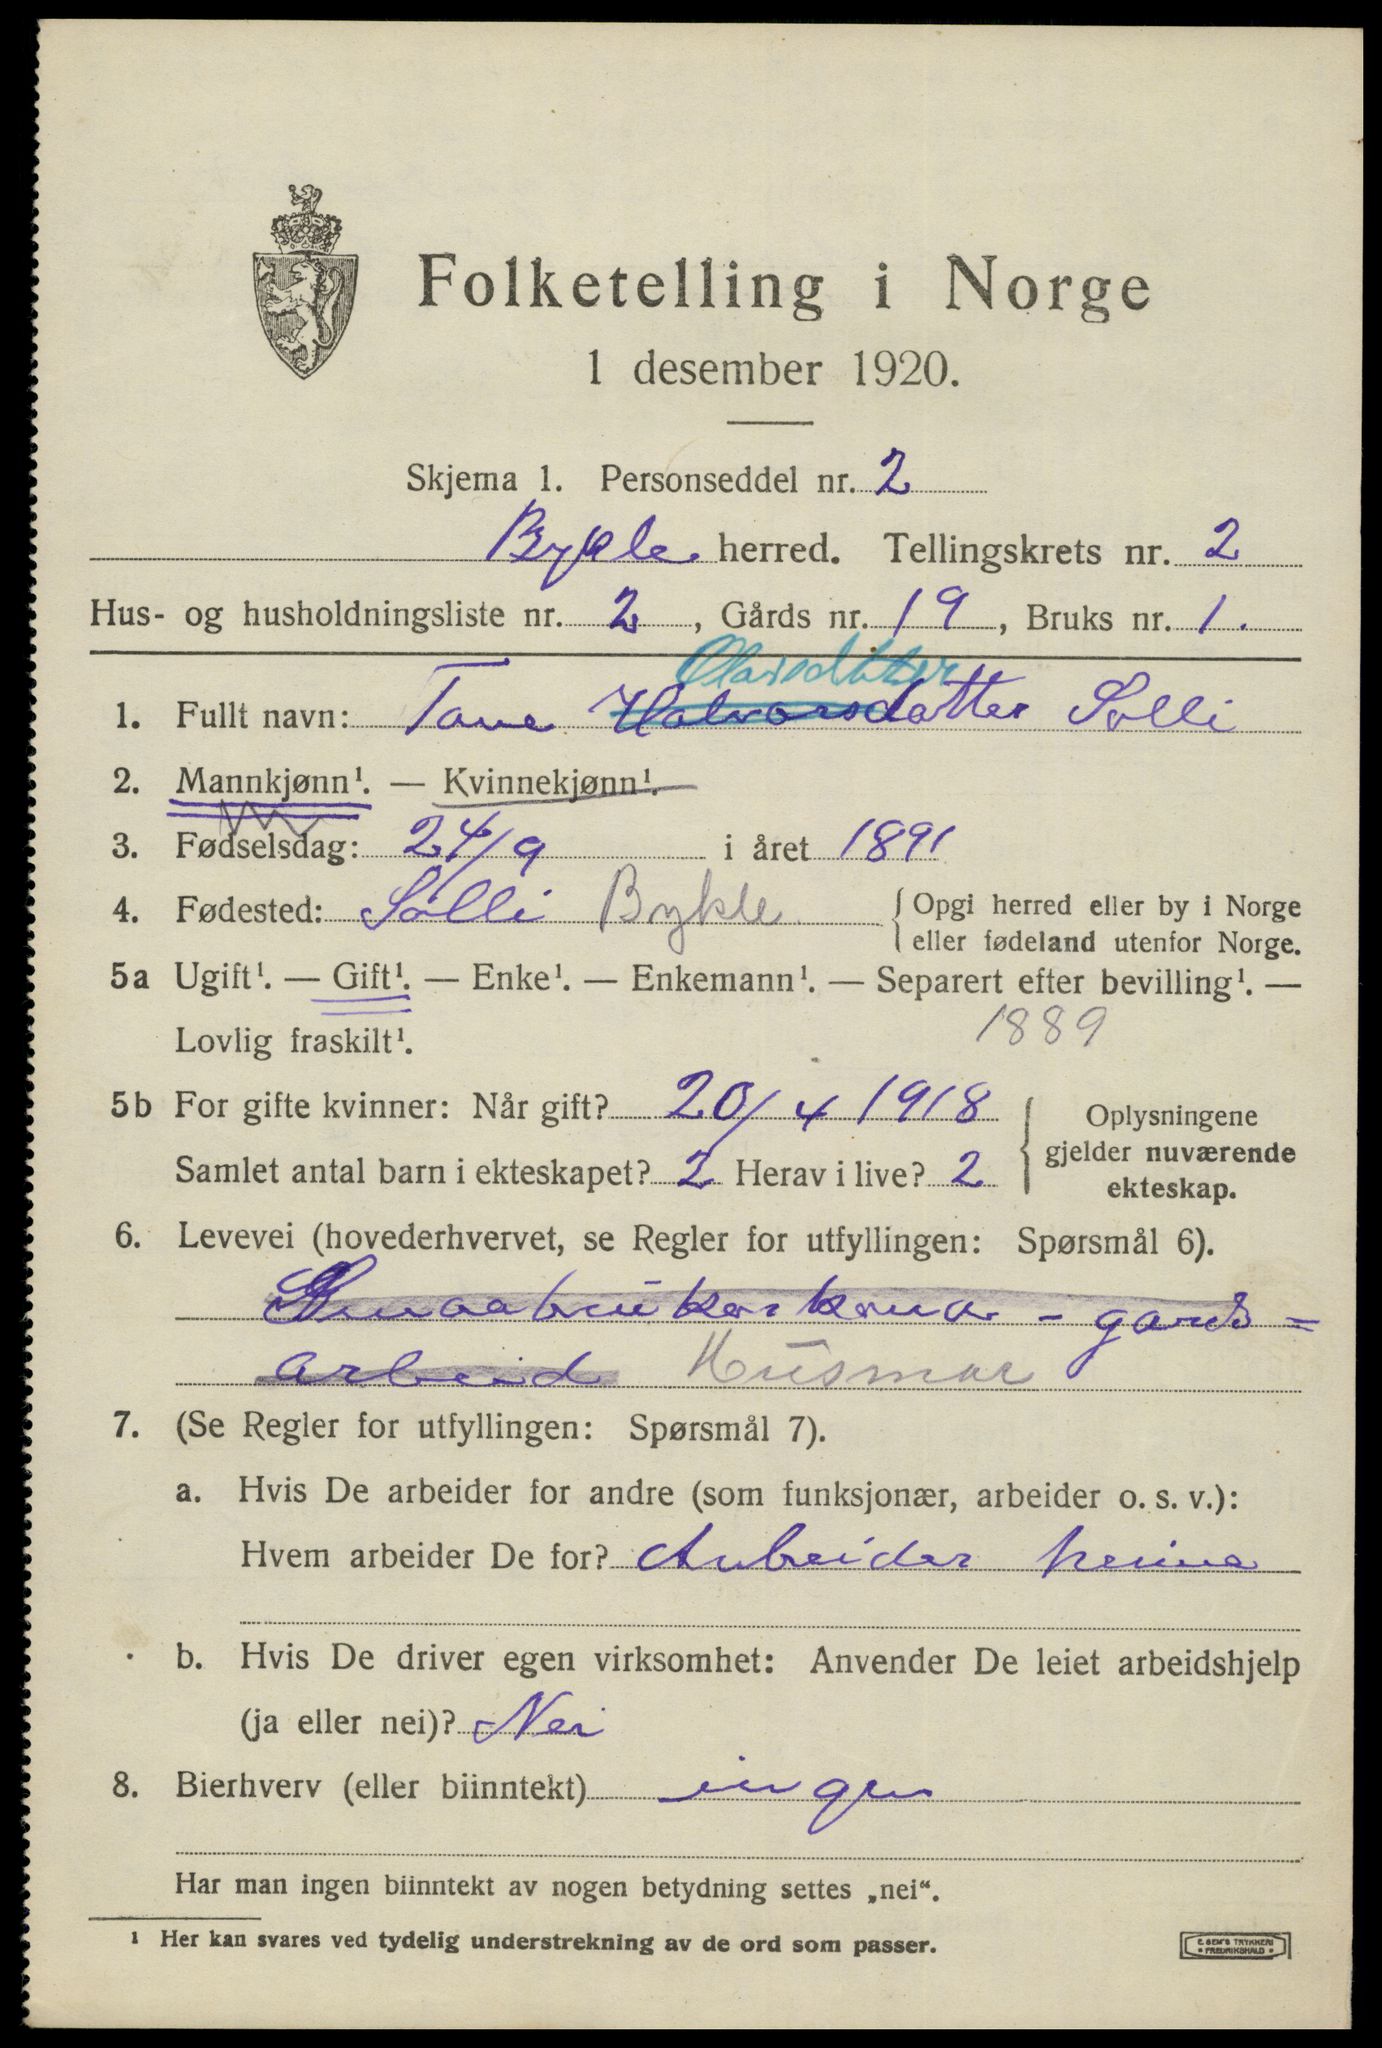 Folketelling i Norge
1 desember 1920.
Skjema 1. Personseddel nr. 2
Bykle herred. Tellingskrets nr. 2
Hus- og husholdningsliste nr. 2, Gårds nr. 19, Bruks nr. 1.
Olavsdatter
1. Fullt navn: Tone Halvorsdatter Solli
2. Mannkjønn¹. — Kvinnekjønn¹.
3. Fødselsdag: 24/9 i året 1891
4. Fødested: Solli Bykle {Opgi herred eller by i Norge
eller fødeland utenfor Norge.
5a Ugift¹. — Gift¹. — Enke¹. — Enkemann¹. — Separert efter bevilling¹. —
Lovlig fraskilt¹. 1889
5b For gifte kvinner: Når gift? 20/4 1918 {Oplysningene
gjelder nuværende
Samlet antal barn i ekteskapet? 2 Herav i live? 2
ekteskap.
6. Levevei (hovederhvervet, se Regler for utfyllingen: Spørsmål 6).
Smaabrukarkona - gards=
arbeid Husmor
7. (Se Regler for utfyllingen: Spørsmål 7).
a. Hvis De arbeider for andre (som funksjonær, arbeider o. s. v.):
Hvem arbeider De for? Arbeider heime
b. Hvis De driver egen virksomhet: Anvender De leiet arbeidshjelp
(ja eller nei)? Nei
8. Bierhverv (eller biinntekt) ingen
Har man ingen biinntekt av nogen betydning settes „nei“.
¹ Her kan svares ved tydelig understrekning av de ord som passer.
E. SEM'S TRYKKERI
FREDRIKSHALD